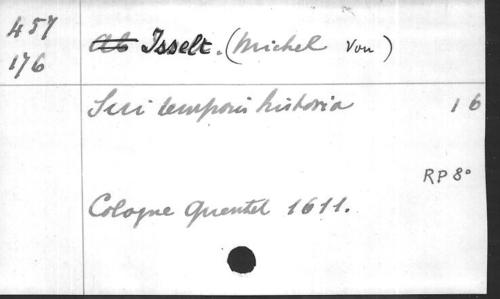 457
176
~~Ab~~ Isselt. (Michel Von)
Sui temporis historia 16
RP 8°
Cologne Quentel 1611.